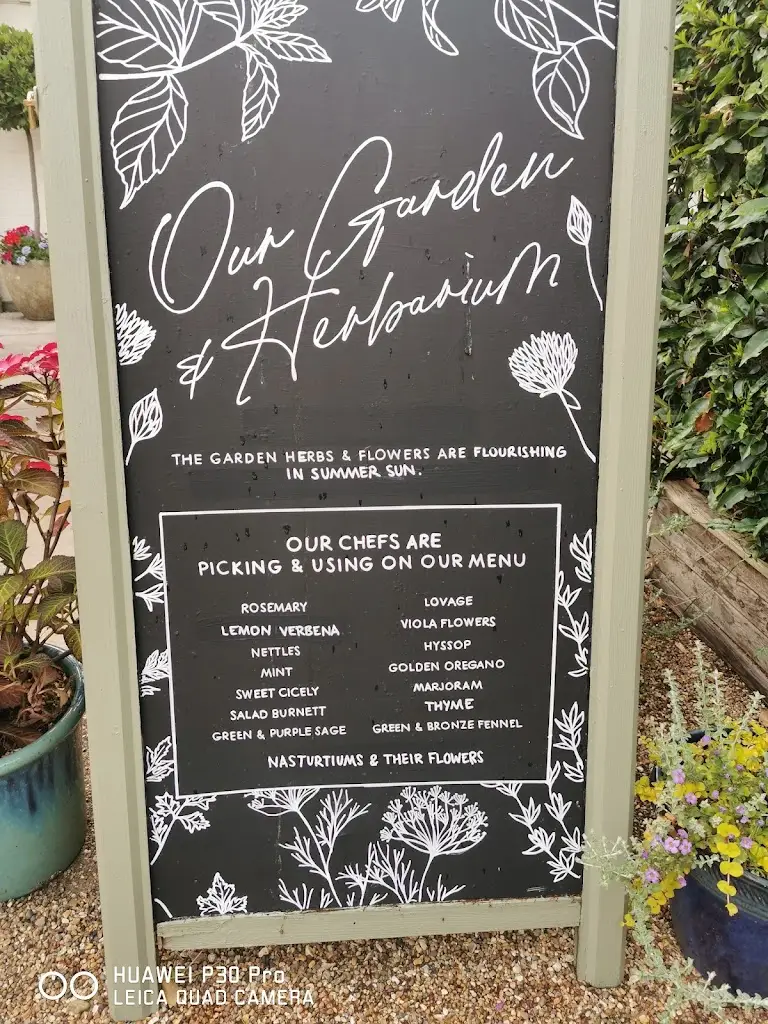 Our Garden
& Herbarium
THE GARDEN HERBS & FLOWERS ARE FLOURISHING
IN SUMMER SUN.
OUR CHEFS ARE
PICKING & USING ON OUR MENU
ROSEMARY
LEMON VERBENA
NETTLES
MINT
SWEET CICELY
SALAD BURNETT
GREEN & PURPLE SAGE
LOVAGE
VIOLA FLOWERS
HYSSOP
GOLDEN OREGANO
MARJORAM
THYME
GREEN & BRONZE FENNEL
NASTURTIUMS & THEIR FLOWERS
HUAWEI P30 Pro
LEICA QUAD CAMERA